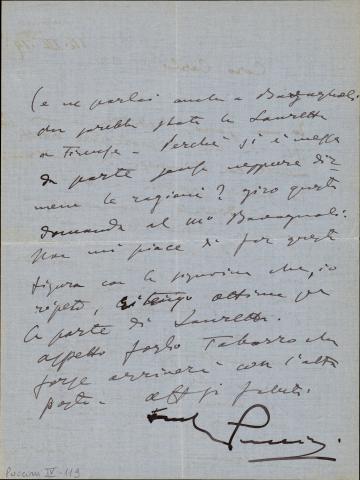 (e ne parlai anche a Bavagnoli
che sarebbe stata la Lauretta
a Firenze – Perchè si è messa
da parte senza neppure dir
mene la ragione? giro questa
domanda al mo Bavagnoli.
Non mi piace di far questa
figura con la signorina che, io
ripeto, ritengo ottima per
la parte di Lauretta.
aspetto foglio Tabarro che
forse arriverà con l'altra
posta – aff saluti.
Puccini
Puccini IV-119